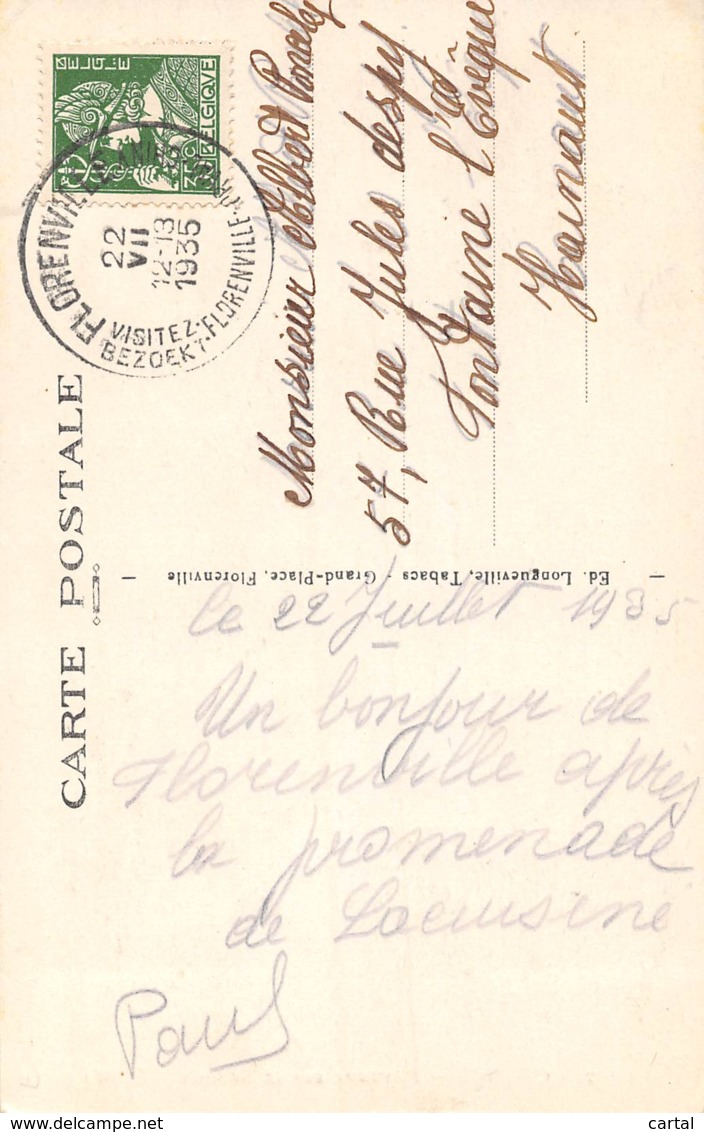 CARTE POSTALE
BELGIE
BELGIQUE
FLORENVILLE
22
VII
12-13
1935
VISITEZ·FLORENVILLE
BEZOEKT
Monsieur Albert
57, Rue Jules despy
Fontaine l'Evêque
Hainaut
Ed. Longueville, Tabacs - Grand-Place, Florenville
le 22 Juillet 1935
Un bonjour de
Florenville après
la promenade
de Lacuisine
Paul
cartal